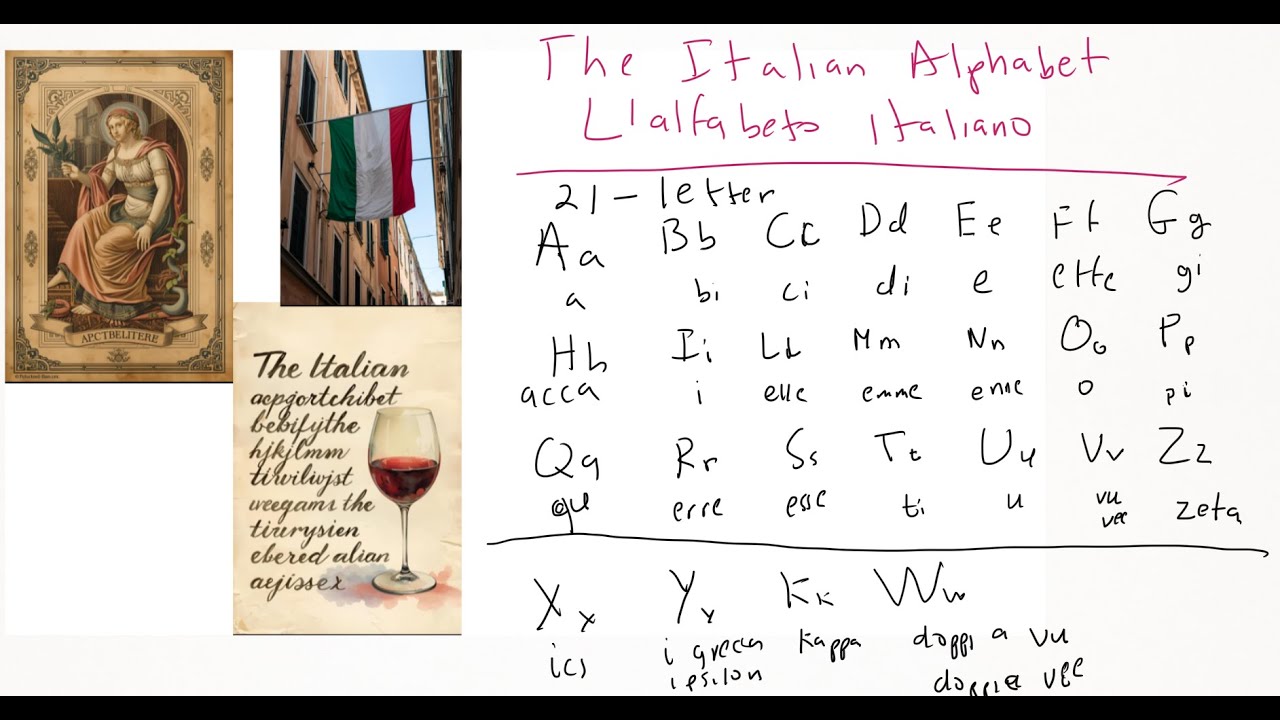 The Italian Alphabet
L'alfabeto italiano
21 - letter
Aa Bb Cc Dd Ee Ff Gg
a bi ci di e effe gi
Hh Ii Ll Mm Nn Oo Pp
acca i elle emme enne o pi
Qq Rr Ss Tt Uu Vv Zz
qu erre esse ti u vu zeta
vee
Xx Yy Kk Ww
ics i greca kappa doppia vu
ipsilon doppia vee
APCTBELITERE
The Italian
acpgortchibet
bebifythe
hjkjlmm
tirvilivjst
veegams the
tiurysien
ebered alian
aejissex